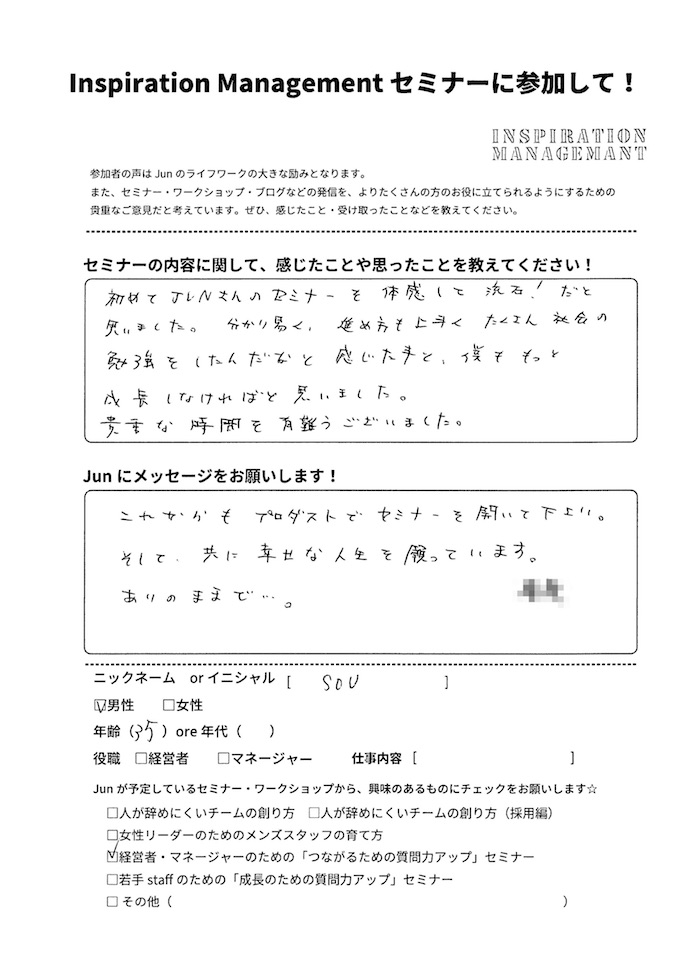 Inspiration Management セミナーに参加して！
INSPIRATION
MANAGEMANT
参加者の声は Jun のライフワークの大きな励みとなります。
また、セミナー・ワークショップ・ブログなどの発信を、よりたくさんの方のお役に立てられるようにするための
貴重なご意見だと考えています。ぜひ、感じたこと・受け取ったことなどを教えてください。
セミナーの内容に関して、感じたことや思ったことを教えてください！
初めて JUNさんのセミナーを 体感して 流石！だと
思いました。 分かり易く、進め方も上手く たくさん 社会の
勉強をしたんだなと 感じた事と、僕も もっと
成長しなければと思いました。
貴重な 時間を 有難うございました。
Jun にメッセージをお願いします！
これからも プロダストで セミナーを 開いて下さい。
そして、共に 幸せな 人生を 願っています。
ありのままで…。
ニックネーム or イニシャル [ SOU ]
☑男性 □女性
年齢（35）ore 年代（ ）
役職 □経営者 □マネージャー 仕事内容 [ ]
Jun が予定しているセミナー・ワークショップから、興味のあるものにチェックをお願いします☆
□人が辞めにくいチームの創り方 □人が辞めにくいチームの創り方（採用編）
□女性リーダーのためのメンズスタッフの育て方
☑経営者・マネージャーのための「つながるための質問力アップ」セミナー
□若手 staff のための「成長のための質問力アップ」セミナー
□ その他（ ）